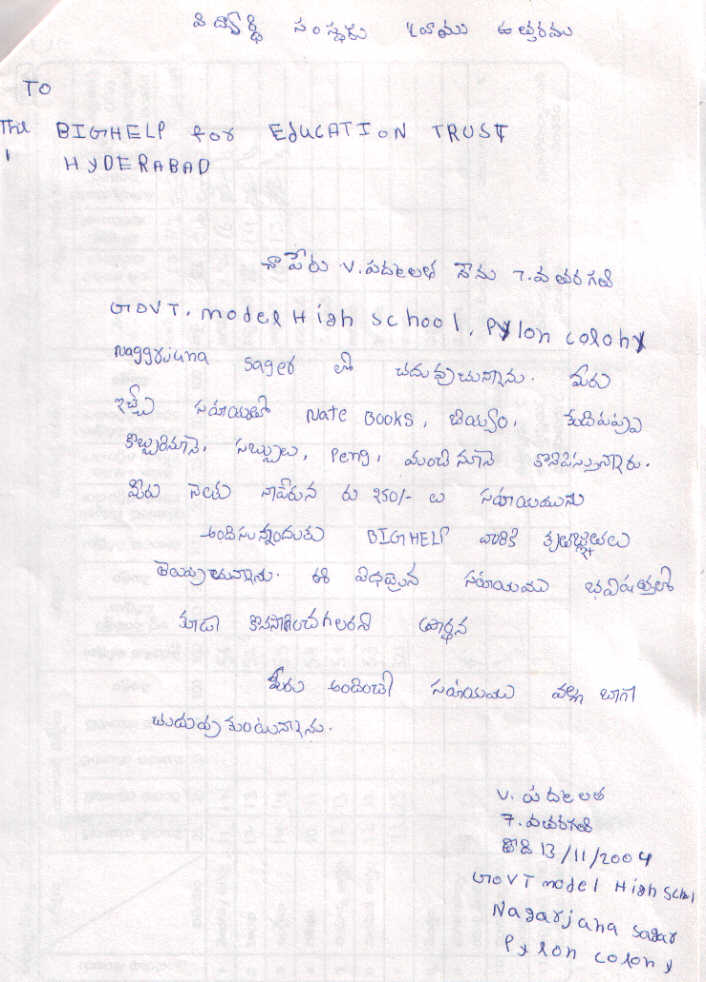 విద్యార్థి సంస్థకు వ్రాయు ఉత్తరము
TO
The BIGHELP for EdUCATION TRUST
HYDERABAD
నా పేరు V. పద్మలత నేను 7.వ తరగతి
GOVT. model High School, Pylon colony
Naggrjuna Sager లో చదువుచున్నాను. మీరు
ఇచ్చే సహాయంతో Nate Books, బియ్యం, కందిపప్పు
కొబ్బరినూనె, సబ్బులు, Pens, మంచి నూనె కొనిపిస్తున్నారు.
మీరు నెలకు నాపేరున రు 250/- ల సహాయమును
అందిసున్నందుకు BIGHELP వారికి కృతజ్ఞతలు
తెలుపుచున్నాను. ఈ విధమైన సహాయము భవిషత్తులో
కూడా కొనసాగించగలరని ప్రార్థన
మీరు అందించే సహాయము వల్ల బాగా
చదువుకుంటున్నాను.
V. పద్మలత
7. వతరగతి
తేది 13/11/2004
GOVT model High Schol
Nagarjana sagar
Pylon colony